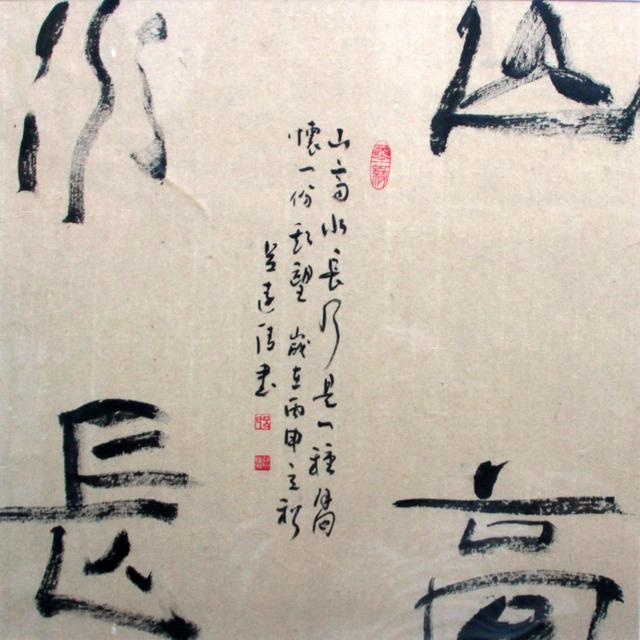 山
高
水
長
山高水長乃是一種情
懷一份望歲在丙申之秋
書